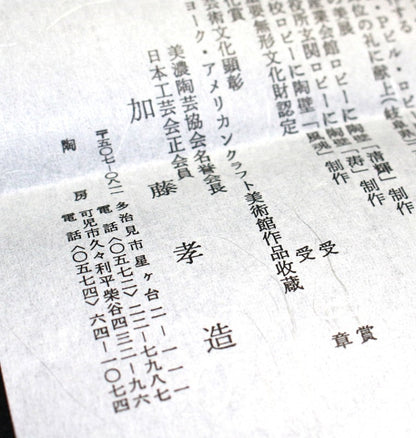 P・ビル・ロビ
陶壁「清輝」制作
位の礼に献上(岐
実展
産業会館ロビーに陶壁「涛」制作
役所玄関ロビーに陶壁「風魂」制作
校ロビーに陶壁
要無形文化財認定
化賞 受賞
芸術文化顕彰 受章
ヨーク・アメリカンクラフト美術館作品収蔵
美濃陶芸協会名誉会長
日本工芸会正会員
加藤孝造
多治見市星ヶ台二-一一一
電話〈〇五七二〉二二-七九八七
陶房 可児市久々利平柴谷四三二-九六
電話〈〇五七四〉六四-一〇七四